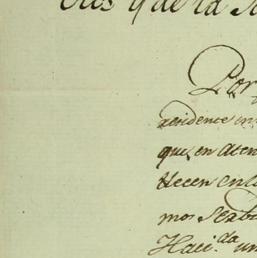 que la
Por
residence en
que, en aten
Hecen en la
mos Sexbi
Haci.da un